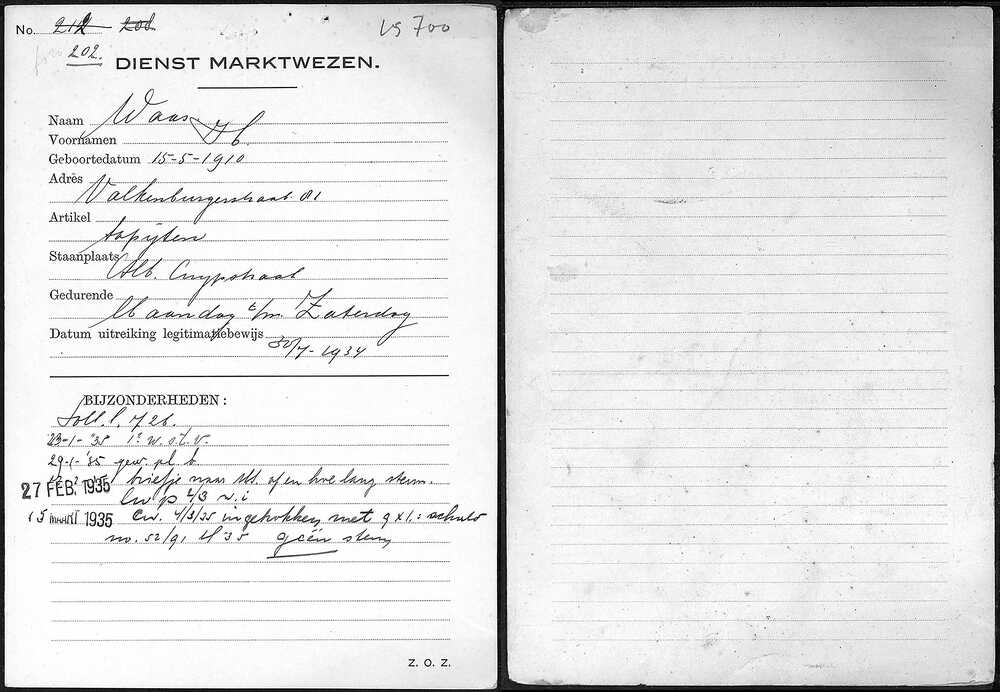 No. 212 208 VS 700
202.
DIENST MARKTWEZEN.
Naam Waas
Voornamen H.
Geboortedatum 15-5-1910
Adres
Valkenburgerstraat 81
Artikel
tapijten
Staanplaats
Alb. Cuypstraat
Gedurende
Maandag t/m. Zaterdag
Datum uitreiking legitimatiebewijs
30/7-1934
BIJZONDERHEDEN:
Soll. l. 726.
23-1-'35 1e w. s.t.v.
29-1-'35 gew. pl. b.
briefje naar M. of en hoe lang steun.
27 FEB. 1935
p 4/3
15 MAART 1935 4/3/35 ingetrokken met 9 x l. schuld
no. 52/91 '35 geen steun
Z. O. Z.